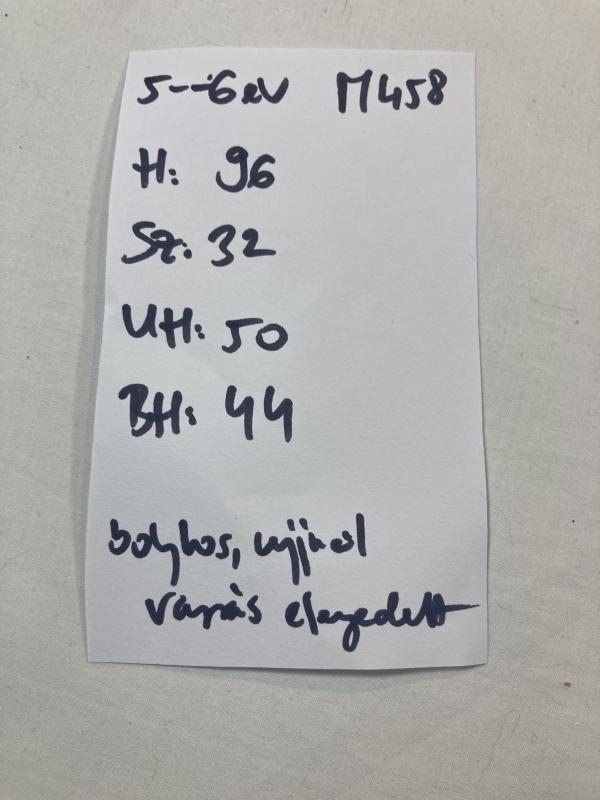 5--6 év M458
H: 96
Sz: 32
UH: 50
BH: 44
bolyhos, ujjnál
varrás elengedett